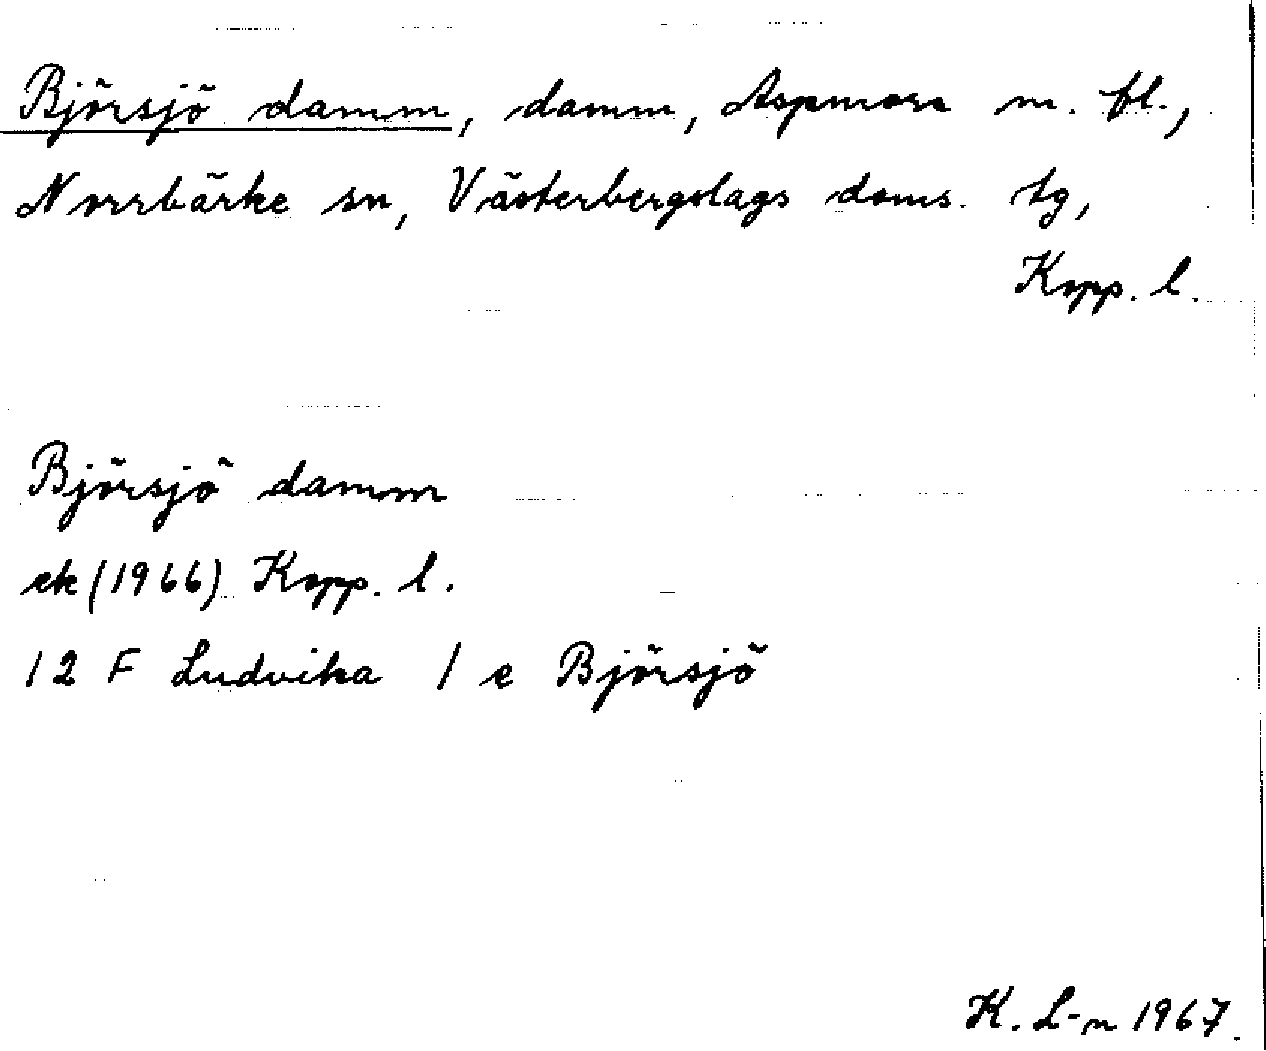 Björsjö damm, damm, Aspmora m. fl.,
Norrbärke sn, Västerbergslags doms. tg,
Kopp. l.
Björsjö damm
ek (1966) Kopp. l.
12 F Ludvika 1 e Björsjö
K. L-n 1967.